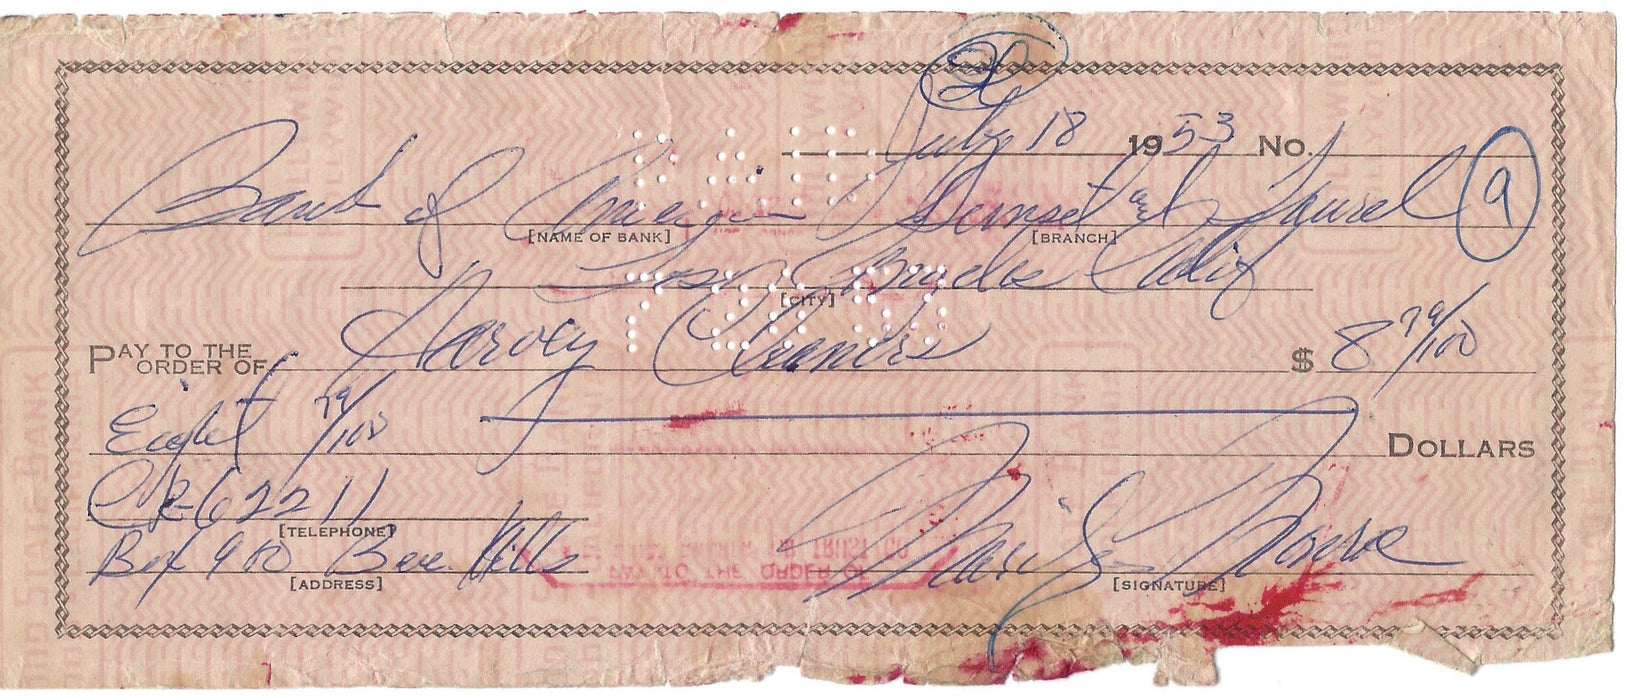 July 18 1953 No.
Bank of America Sunset and Laurel 9
[NAME OF BANK] [BRANCH]
Los Angeles Calif
[CITY]
PAY TO THE ORDER OF Harvey Cleaners $ 8 79/100
Eight 79/100 DOLLARS
CR-62211
[TELEPHONE]
Box 900 Bev. Hills Marilyn Monroe
[ADDRESS] [SIGNATURE]